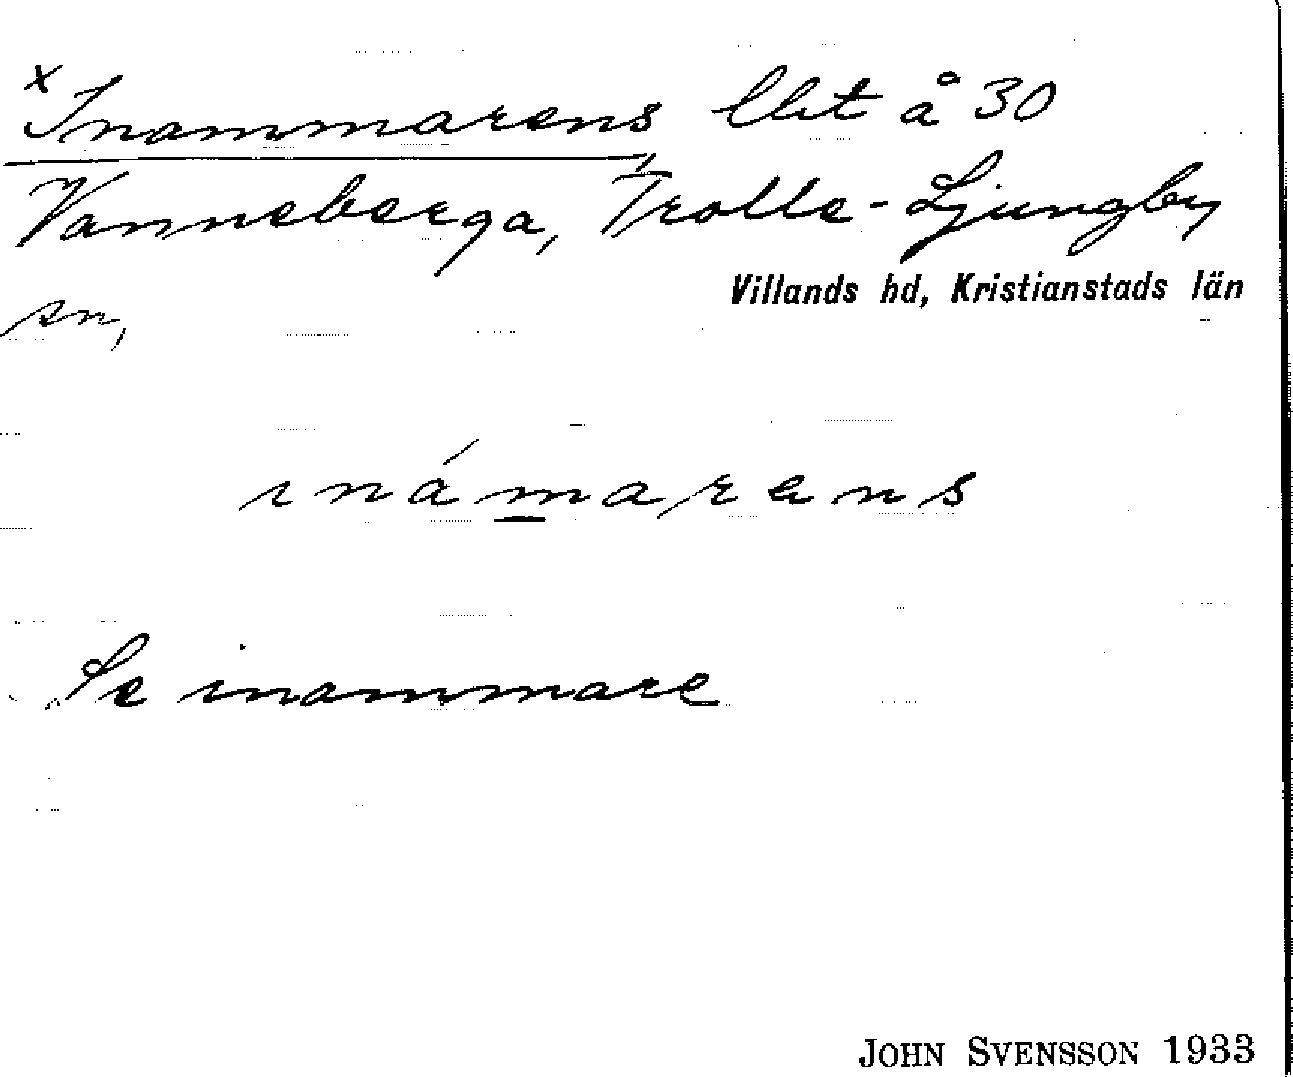 x Inammarens Ulit å 30
Vanneberga, Trolle-Ljungby
Villands hd, Kristianstads län
sn,
inámarens
Se inammare
JOHN SVENSSON 1933